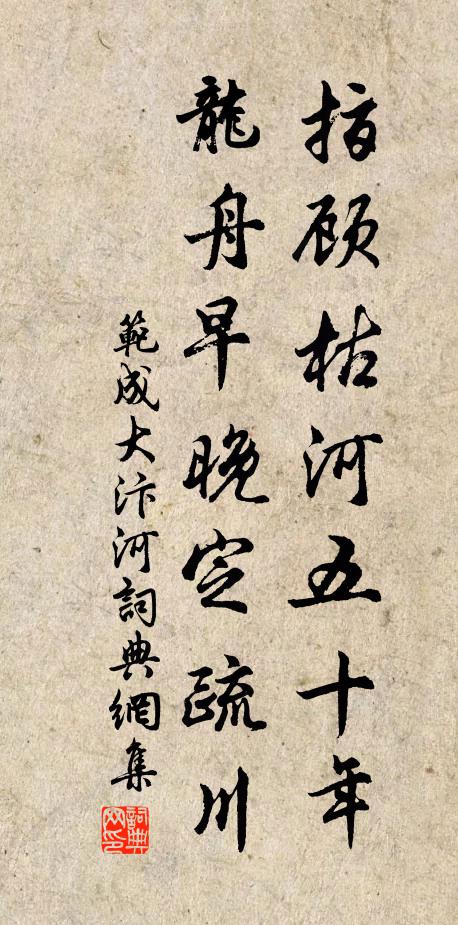 指顾枯河五十年
龍舟早晚定疏川
範成大汴河詞典網集
詞典网印